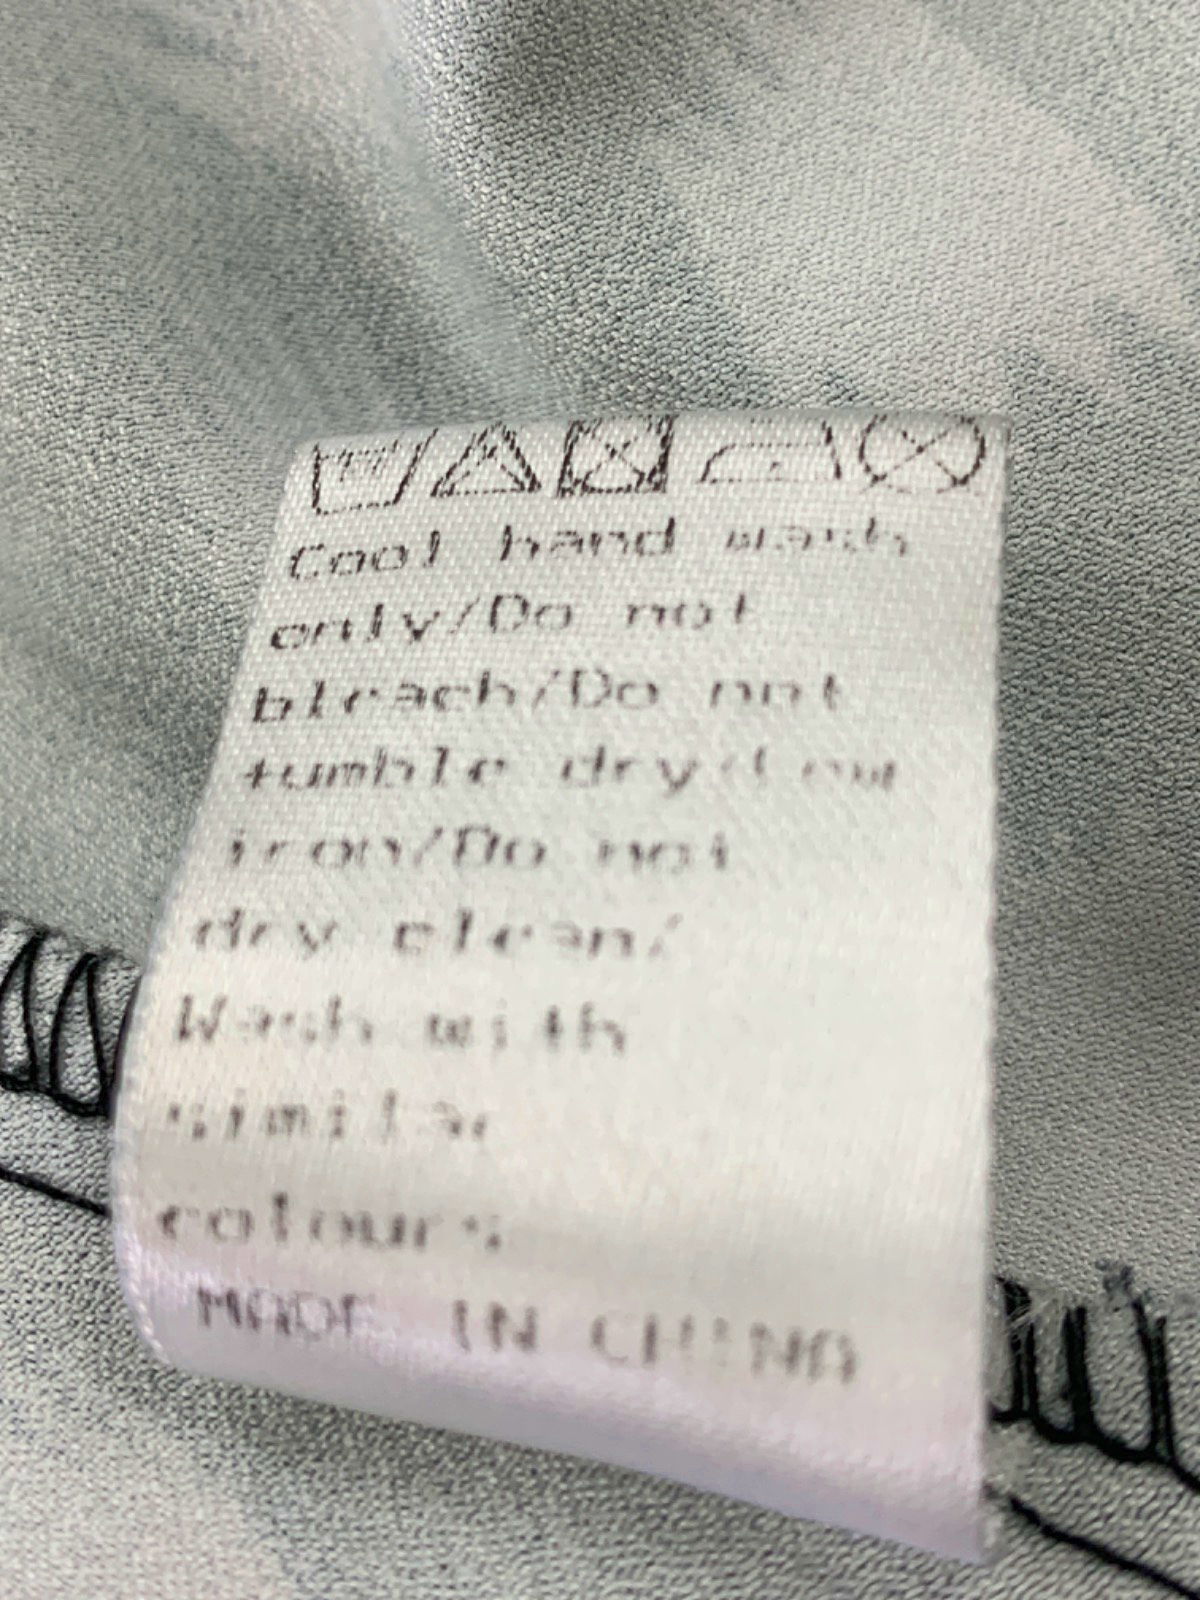 Cool hand wash
only/Do not
bleach/Do not
tumble dry/Low
iron/Do not
dry clean/
Wash with
similar
colours
MADE IN CHINA